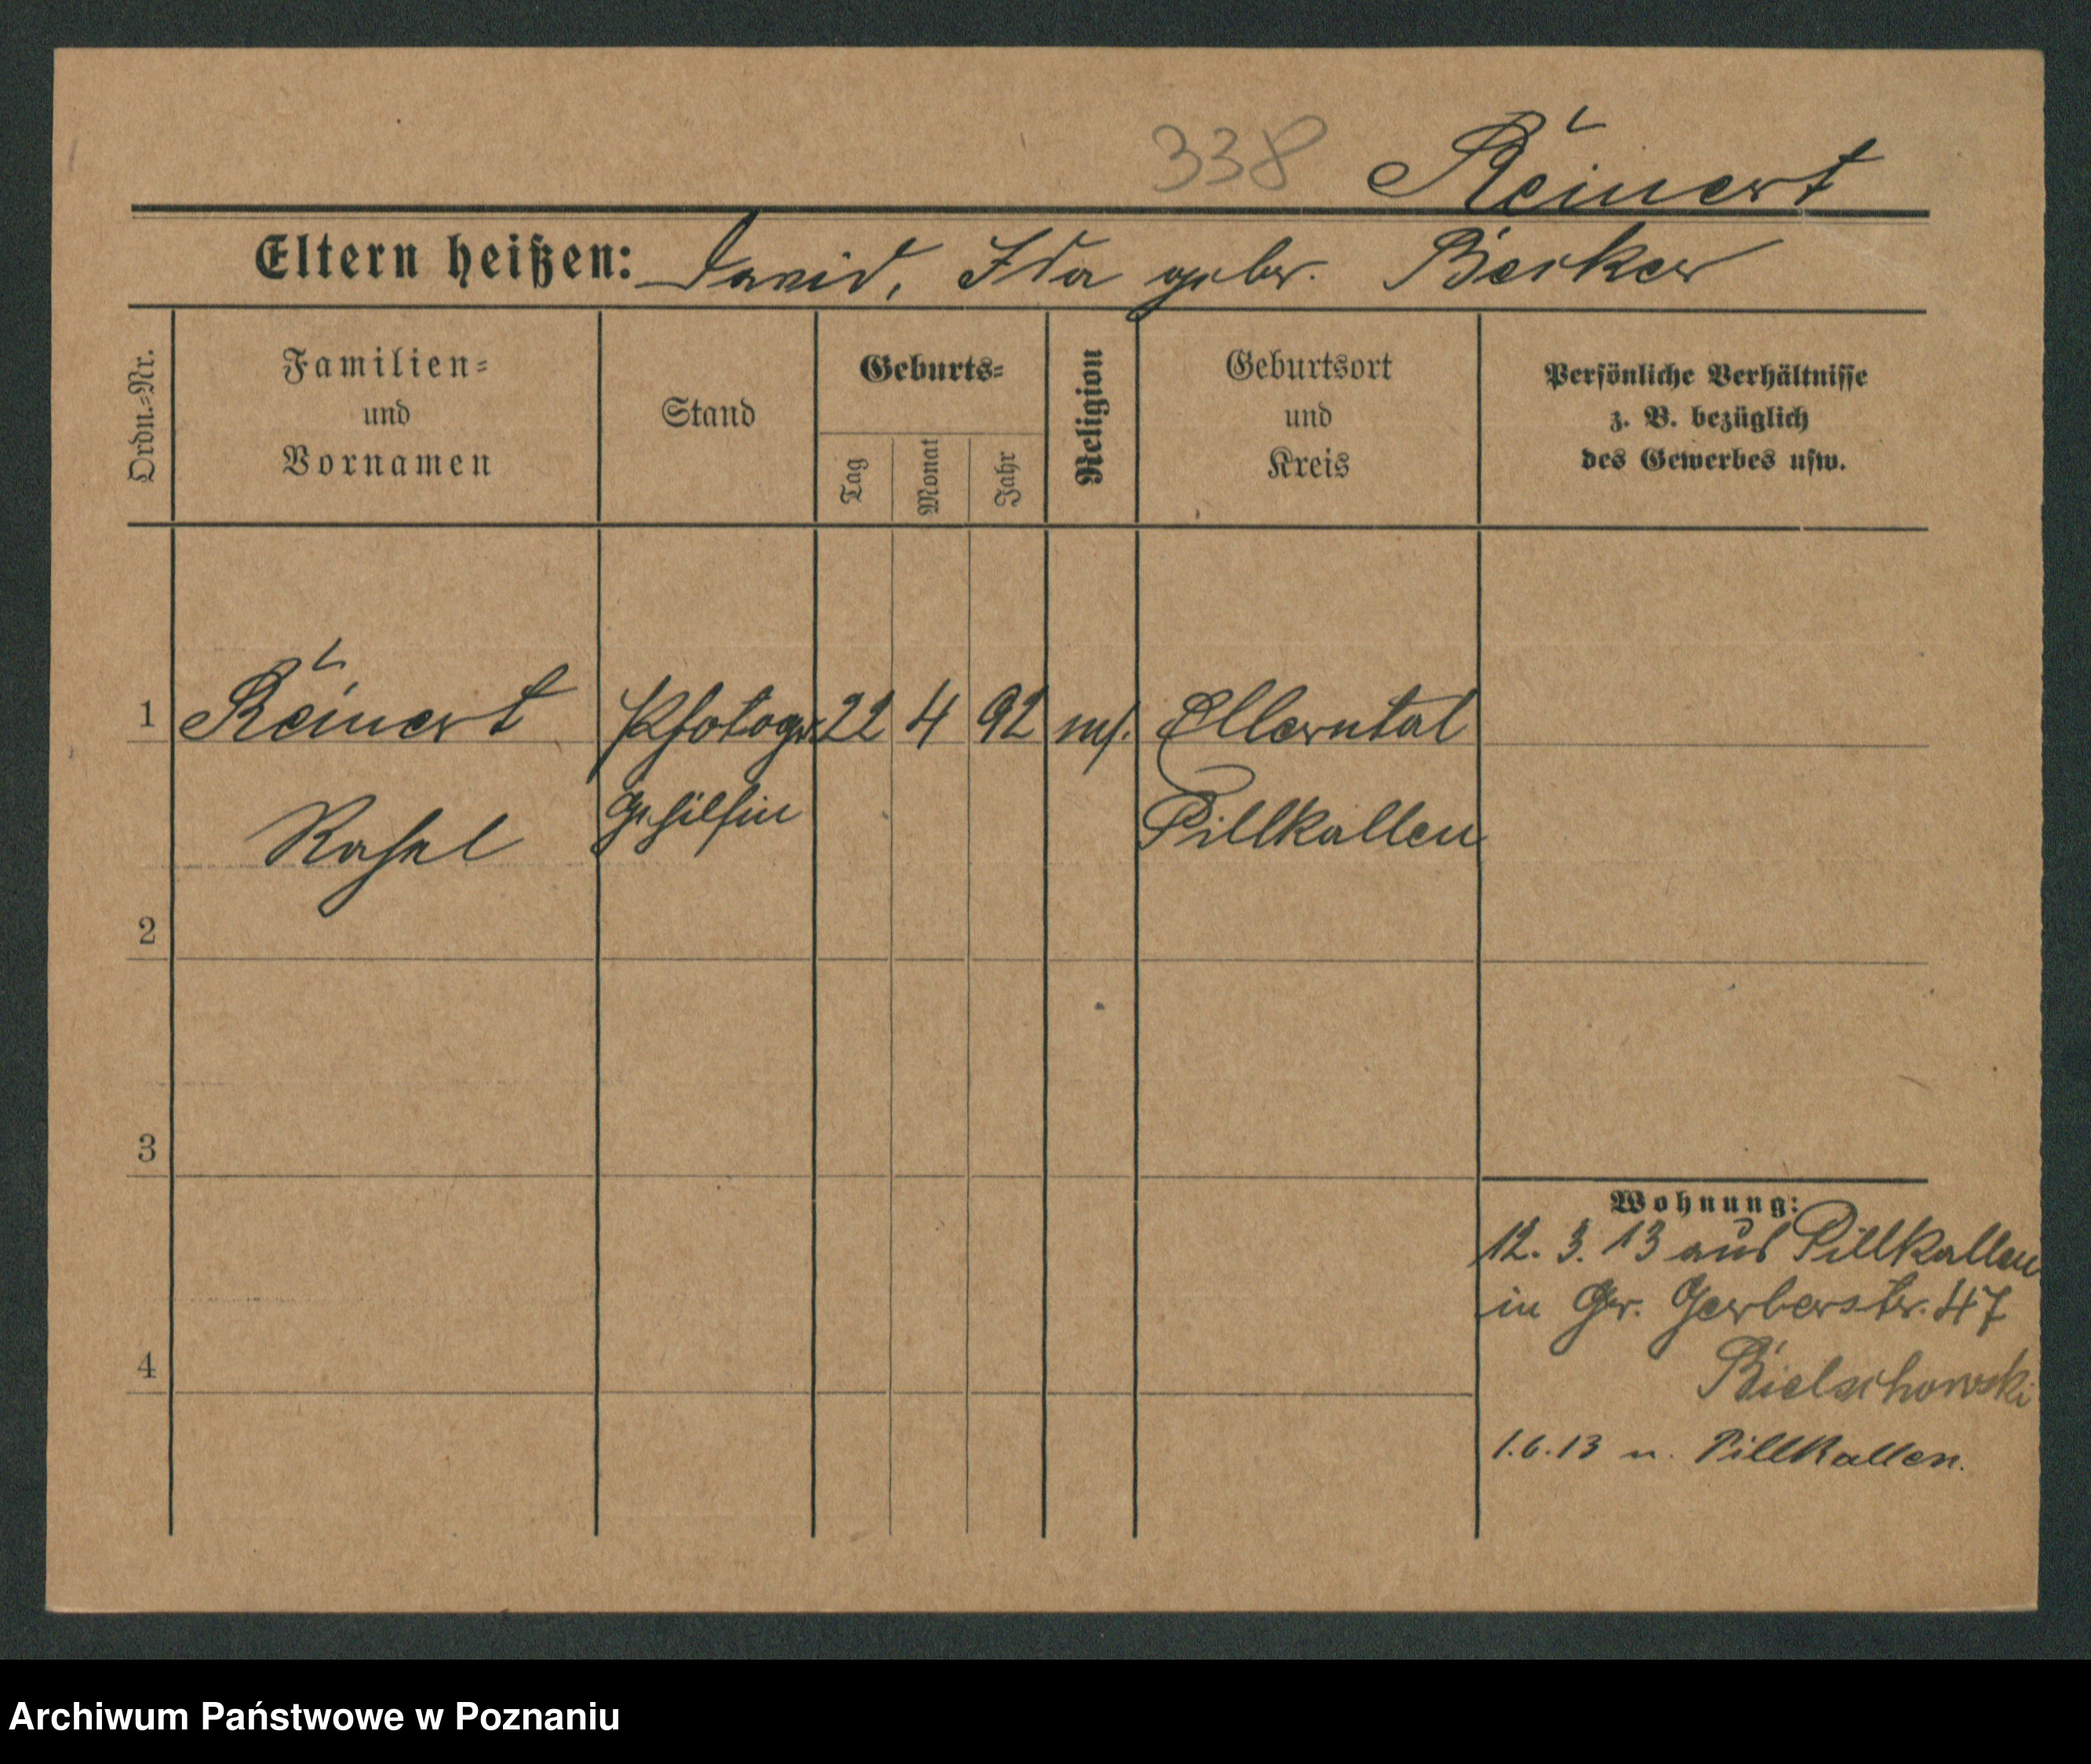 338 Reinert
Eltern heißen: David, Ida gebr. Becker
Ordn.-Nr.
Familien-
und
Vornamen
Stand
Geburts-
Tag
Monat
Jahr
Religion
Geburtsort
und
Kreis
Persönliche Verhältnisse
z. B. bezüglich
des Gewerbes usw.
1 Reinert Photogr. 22 4 92 Ellerntal
Rahel Gehilfin Pillkallen
2
3
4
Wohnung:
12. 3. 13 aus Pillkallen
in Gr. Gerberstr. 47
Bielschowski
1.6.13 n. Pillkallen.
Archiwum Państwowe w Poznaniu